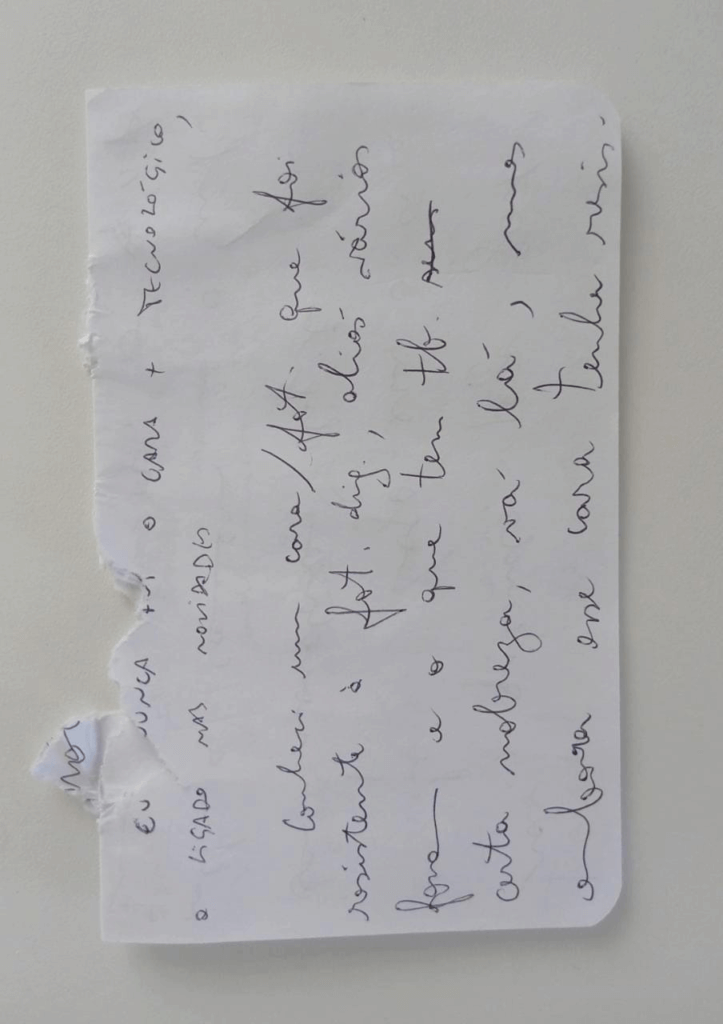 EU NUNCA FUI O CARA + TECNOLÓGICO,
O LIGADO NAS NOVIDADES
Conheci um cara/fot. que foi
resistente à fot. dig., aliás vários
fora— e o que tem tb.
certa nobreza, vá lá, mas
embora esse cara tenha